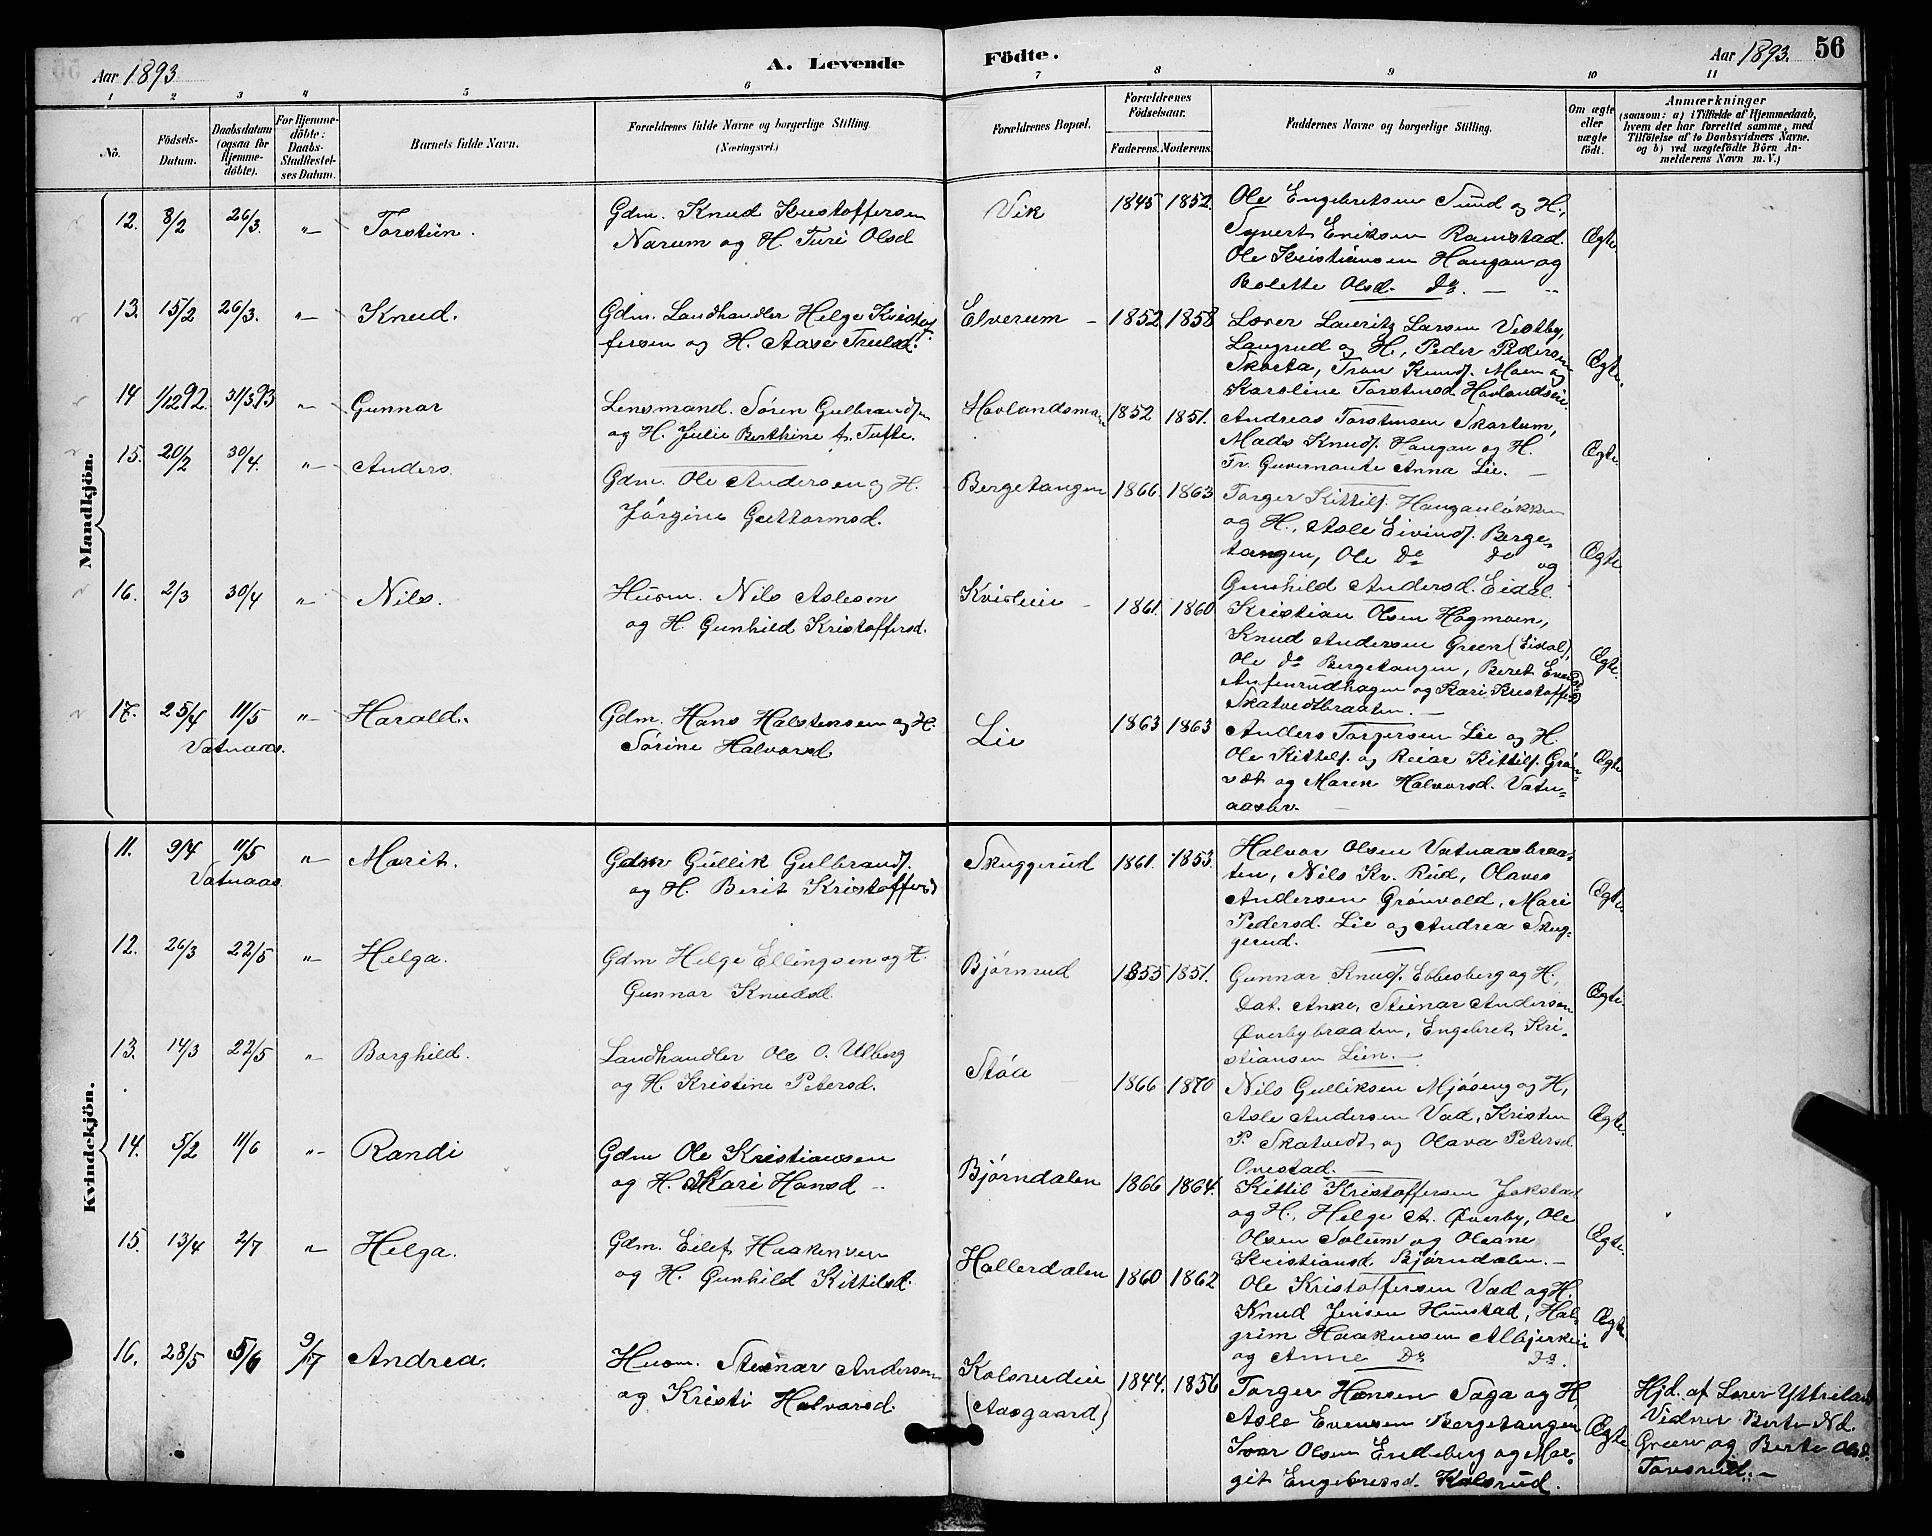 Aar 1893
A. Levende
Födte.
Aar 1893.
56
1 2 3 4 5 6 7 8 9 10 11
No.
Födsels-
Datum.
Daabsdatum
(ogsaa for
Hjemme-
döbte).
For Hjemme-
döbte:
Daabs-
Stadfæstel-
ses Datum.
Barnets fulde Navn.
Forældrenes fulde Navne og borgerlige Stilling.
(Næringsvei.)
Forældrenes Bopæl.
Forældrenes
Födselsaar.
Faderens. Moderens.
Faddernes Navne og borgerlige Stilling.
Om ægte
eller
uægte
födt.
Anmærkninger
(saasom: a) i Tilfælde af Hjemmedaab,
hvem der har forrettet samme, med
Tilföielse af to Daabsvidners Navne.
og b) ved uægtefödte Börn An-
melderens Navn m. V.)
Mandkjön.
12. 8/2 26/3. " Torstein.
Gdm. Knud Kristoffersen
Narum og H. Turi Olsd
Vik
1845 1852.
Ole Engebretsen Sund og H.,
Syvert Eriksen Ramstad.
Ole Kristiansen Haugan og
Bolette Olsd. Do. —
Ægte.
13. 15/2 26/3. " Knud.
Gdm. Landhandler Helge Kristof-
fersen og H. Aase Trulsd.
Elverum –
1852 1858
Lærer Lauritz Larsen Vestby,
Laugrud og H., Peder Pedersen
Skarta, Tron Knuds. Moen og
Karoline Torstensd Hovlandseie.
Ægte.
14 1/12 92. 31/3.93 " Gunnar
Lensmand. Sören Gulbrands̱en
og H. Julie Berthine f. Tufte.
Hovlandsmoen
1852 1851.
Andreas Torstensen Skartum,
Mads Knuds. Haugan og H.
Fr. Guvernante Anna Lie. —
Ægte
15. 20/2 30/4. " Anders
Gdm. Ole Andersen og H.
Jörgine Guttormsd.
Bergetangen
1866. 1863
Torger Kittils. Hauganløkken
og H., Asle Eivinds. Berge-
tangen, Ole Do Do og
Gunhild Andersd. Eidal.
Ægte
16. 2/3 30/4 " Nils.
Husm. Nils Aslesen
og H. Gunhild Kristoffersd.
1861. 1860
Kristian Olsen Hagmoen,
Knud Andersen Green (Eidal),
Ole Do Bergetangen, Beret
Anfinrudhagen og Kari Kristoffersd
Skatvedtbraaten. —
Ægte.
17. 25/4 11/5 " Harald.
Vatnaas.
Gdm. Hans Halstensen og H.
Sörine Halvorsd
Lie
1863 1863
Anders Torgersen Lie og H.
Ole Kittils. og Reiar Kittils. Grön-
væt og Maren Halvorsd. Vatn-
aasbr. —
Ægte
Kvindekjön.
11. 9/4 11/5 " Marit.
Vatnaas
Gdm Gullik Gulbrands.
og H. Berit Kristoffersd
Skuggerud
1861. 1853.
Halvor Olsen Vatnaasbraa-
ten, Nils Kr. Rud, Olaves
Andersen Grönvold, Mari
Pedersd. Lie og Andrea Skug-
gerud.
Ægte
12. 26/3 22/5 " Helga.
Gdm Helge Ellingsen og H.
Gunnor Knudsd
Bjørnrud
1855 1851.
Gunnar Knuds. Ebbesberg og H.,
Dat. Anne, Steinar Andersen
Øverbybraaten, Engebret Kri-
stiansen Lien. —
Ægte.
13. 14/3 22/5 " Borghild.
Landhandler Ole O. Ulberg
og H. Kristine Petersd.
Støa –
1866 1870
Nils Gulliksen Mjøseng og H,
Asle Andersen Vad, Kristen
P. Skatvedt og Olava Petersd
Ovestad. —
Ægte.
14. 5/2 11/6 " Randi
Gdm Ole Kristiansen
og H. Kari Hansd –
Bjørndalen
1866 1864.
Kittil Kristoffersen Jokstad
og H., Helge A. Øverby, Ole
Olsen Solum og Oleane
Kristiansd Bjørndalen. —
Ægte.
15. 13/4 2/7 " Helga.
Gdm. Eilef Haakensen
og H. Gunhild Kittilsd.
Hallerdalen
1860 1862
Ole Kristoffersen Vad og H.
Knud Jensen Hunstad, Hal-
grim Haakensen Albjerkeie
og Anne Do Do.
Ægte
16. 28/5 5/6 9/7 Andrea.
Husm. Steinar Andersen
og Kristi Halvorsd.
Kolsrudeie
(Aasgaard)
1844. 1856
Torger Hansen Saga og H,
Asle Evensen Bergetangen
Ivar Olsen Endeberg og Mar-
git Engebretsd. Kolsrud.
Ægte
Hjd. af Lærer Ytteland
Vidner Berte Nd.
Green og Berte Olsd.
Tovsrud. —